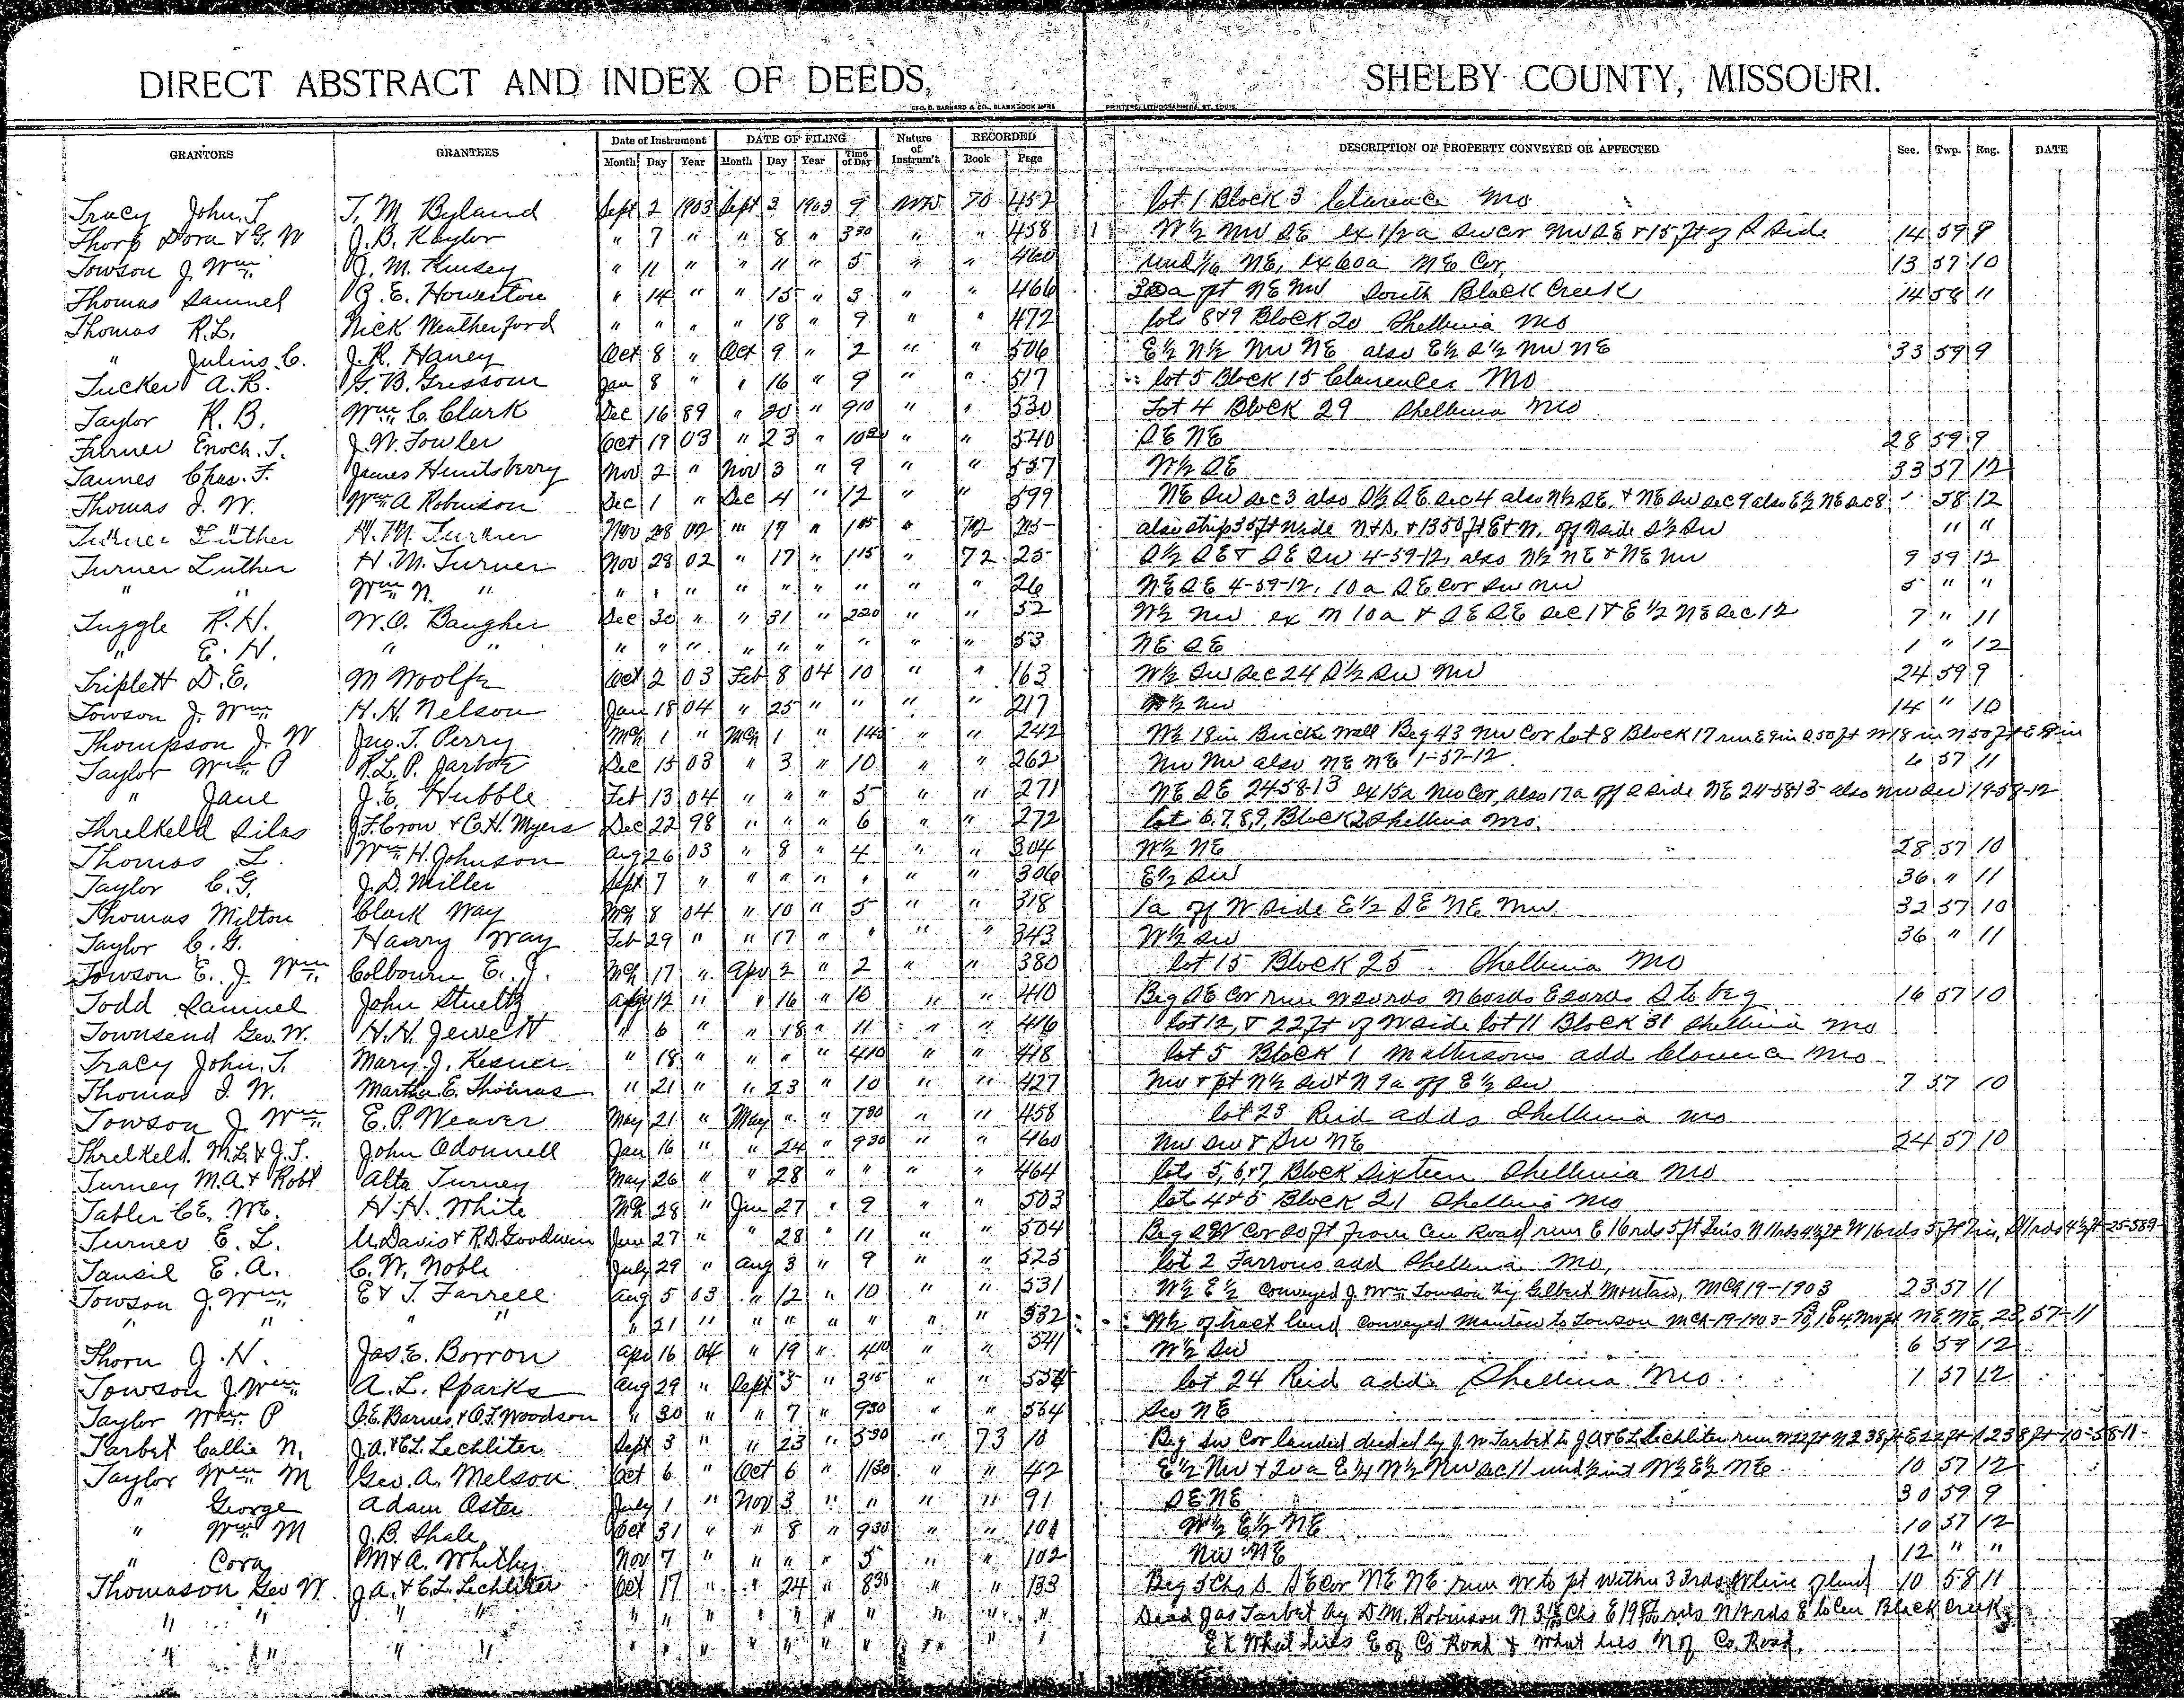 DIRECT ABSTRACT AND INDEX OF DEEDS, SHELBY COUNTY, MISSOURI.
GEO. D. BARNARD & CO., BLANK BOOK MFRS PRINTERS, LITHOGRAPHERS, ST. LOUIS.
GRANTORS GRANTEES Date of Instrument DATE OF FILING Nature of Instrum't RECORDED DESCRIPTION OF PROPERTY CONVEYED OR AFFECTED Sec. Twp. Rng. DATE
Month Day Year Month Day Year Time of Day Book Page
Tracy John. T T. M Byland Sept 2 1903 Sept 3 1903 9 WD 70 452 lot 1 Block 3 Clarence Mo
Thorp Dora & G. W J. B. Kaylor " 7 " " 8 " 330 " " 458 W½ NW SE ex 1/2 a SW cor NW SE & 15 ft of S Side 14 59 9
Towson J. Wm J. M. Kinsey " 11 " " 11 " 5 " " 460 und 1/6 NE, ex 60a NE Cor, 13 57 10
Thomas Samuel B. E. Howerton " 14 " " 15 " 3 " " 466 a pt NE NW South Black Creek 14 58 11
Thomas R. L. Nick Weatherford " " " " 18 " 9 " " 472 lots 8&9 Block 20 Shelbina Mo
" Julius. C. J. R. Haney Oct 8 " Oct 9 " 2 " " 506 E½ N½ NW NE also E½ S½ NW NE 33 59 9
Tucker A. R. G. B. Grissom Jan 8 " " 16 " 9 " " 517 lot 5 Block 15 Clarence Mo
Taylor R. B. Wm C. Clark Dec 16 89 " 20 " 910 " " 530 Lot 4 Block 29 Shelbina Mo
Turner Enoch. T. J. W. Fowler Oct 19 03 " 23 " " " 540 SE NE 28 59 9
Tannes Chas. F. James Huntsberry Nov 2 " Nov 3 " 9 " " 557 W½ SE 33 57 12
Thomas J. W. Wm A Robinson Dec 1 " Dec 4 " 12 " " 599 NE SW Sec 3 also S½ SE Sec 4 also N½ SE, & NE SW Sec 9 also E½ NE Sec 8 58 12
Turner Luther H. M. Turner Nov 28 02 " 17 " 115 " 72 25 also strip 35 ft wide N & S. & 1350 ft E & W. off N side S½ SW " "
Turner Luther H. M. Turner Nov 28 02 " 17 " 115 " 72 25 S½ SE & SE SW 4-59-12, also N½ NE & NE NW 9 59 12
" " Wm N. " " " " " " " " " " 26 NE SE 4-59-12, 10 a SE Cor SW NW 5 " "
Tuggle R. H. W. O. Baugher Dec 30 " " 31 " 220 " " 52 W½ NW ex N 10a & SE SE Sec 1 & E½ NE Sec 12 7 " 11
" E. H. " " " " " " " " " " " 53 NE SE 1 " 12
Triplett D. E. M Woolfe Oct 2 03 Feb 8 04 10 " " 163 W½ SW Sec 24 S½ SW NW 24 59 9
Towson J. Wm H. H. Nelson Jan 18 04 " 25 " " " " 217 W½ NW 14 " 10
Thompson J. W Jno. T. Perry Mch 1 " Mch 1 " " " 242 W½ 18 in Brick Wall Beg 43 NW Cor lot 8 Block 17 run E 9 in S 50 ft W 18 in N 50 ft E 9 in
Taylor Wm P R. L. P. Jarboe Dec 15 03 " 3 " 10 " " 262 NW NW also NE NE 1-57-12 6 57 11
" Jane J. E. Hubble Feb 13 04 " " " 5 " " 271 NE SE 24 58-13 ex 15a NW Cor, also 17a off S side NE 24-58-13 also NW SW 19-58-12
Threlkeld Silas J. F. Crow & C. H. Myers Dec 22 98 " " " 6 " " 272 lot 6, 7, 8, 9, Block 2 Shelbina Mo.
Thomas L. Wm H. Johnson Aug 26 03 " 8 " 4 " " 304 W½ NE 28 57 10
Taylor C. G. J. D. Miller Sept 7 " " " " " " " 306 E½ SW 36 " 11
Thomas Milton Clark Way Mch 8 04 " 10 " 5 " " 318 1a off W side E½ SE NE NW 32 57 10
Taylor C. G. Harry Way Feb 29 " " 17 " " " " 343 W½ SW 36 " 11
Towson E. J. Wm Colbourn E. J. Mch 17 " Apr 2 " 2 " " 380 lot 15 Block 25 Shelbina Mo
Todd Samuel John Stueltz Apr 12 " " 16 " 10 " " 410 Beg SE Cor run W rds N 6 rds E rds S to beg 16 57 10
Townsend Geo. W. H. H. Jewett " 6 " " 18 " 11 " " 416 lot 12, & 22 ft of W side lot 11 Block 31 Shelbina Mo
Tracy John. T. Mary J. Kesner " 18 " " " " 410 " " 418 lot 5 Block 1 Mathersons add Clarence Mo
Thomas J. W. Martha E. Thomas " 21 " " 23 " 10 " " 427 NW & pt N½ SW & N 9a off E½ SW 7 57 10
Towson J. Wm E. P. Weaver May 21 " May " " 730 " " 458 lot 23 Reid adds Shelbina Mo
Threlkeld M. L. & J. T. John Odonnell Jan 16 " " 24 " 930 " " 460 NW SW & SW NE 24 57 10
Turney M. A. & Robt Alta Turney May 26 " " 28 " " " " 464 lots 5, 6&7, Block Sixteen Shelbina Mo
Tabler C. E. H. H. White Mch 28 " Jun 27 " 9 " " 503 lot 4&5 Block 21 Shelbina Mo
Turner E. L. U. Davis & R. D. Goodwin Jun 27 " " 28 " 11 " " 504 Beg SW Cor 20 ft from Cen Road run E 16 rds 5 ft 7 in N 11 rds 4½ ft W 16 rds 5 ft 7 in, S 11 rds 4½ ft 25-58 9
Tansil E. A. C. W. Noble July 29 " Aug 3 " 9 " " 525 lot 2 Farrous add Shelbina Mo,
Towson J. Wm E & T. Farrell Aug 5 03 " 12 " 10 " " 531 W½ E½ Conveyed J. Wm Towson by Gilbert Montaw, Mch 19-1903 23 57 11
" " " " " 21 " " " " " " " 532 W½ of tract land Conveyed to Towson Mch-19-1903 NE NE, 23, 57-11
Thorn J. H. Jas. E. Borron Apr 16 04 " 19 " 410 " " 541 W½ SW 6 59 12
Towson J. Wm A. L. Sparks Aug 29 " Sept 3 " 315 " " lot 24 Reid adds Shelbina Mo 1 57 12
Taylor Wm P J. E. Barnes & O. F. Woodson " 30 " " 7 " 930 " " 564 SW NE
Tarbet Callie N. J. A. & C. L. Lechliter Sept 3 " " 23 " 530 " 73 10 Beg SW Cor landed deeded by J. W Tarbet to J A & C L Lechliter run W 22 ft N 238 ft E 22 ft S 238 ft 10-58-11
Taylor Wm M Geo. A. Melson Oct 6 " Oct 6 " 1130 " " 42 E½ NW & 20a E¼ W½ NW Sec 11 und ½ int W½ E½ NE 10 57 12
" George Adam Oster July 1 " Nov 3 " " " " 91 SE NE 30 59 9
" Wm M J. B. Shale Oct 31 " " 8 " 930 " " 101 W½ E½ NE 10 57 12
" Cora M & A. Whitby Nov 7 " " " " 5 " " 102 NW NE 12 " "
Thomason Geo W. J. A. & C. L. Lechliter Oct 17 " " 24 " 830 " " 133 Beg 5 Chs S. SE Cor NE NE run W to pt within 33 rds W line of land 10 58 11
" " " " " " " " " " " " " " Deed Jas Tarbet by D. M. Robinson N Chs E rds N rds E to Cen Black Creek,
" " " " " " " " " " " " " " Ex What lies E of Co Road & what lies N of Co. Road.